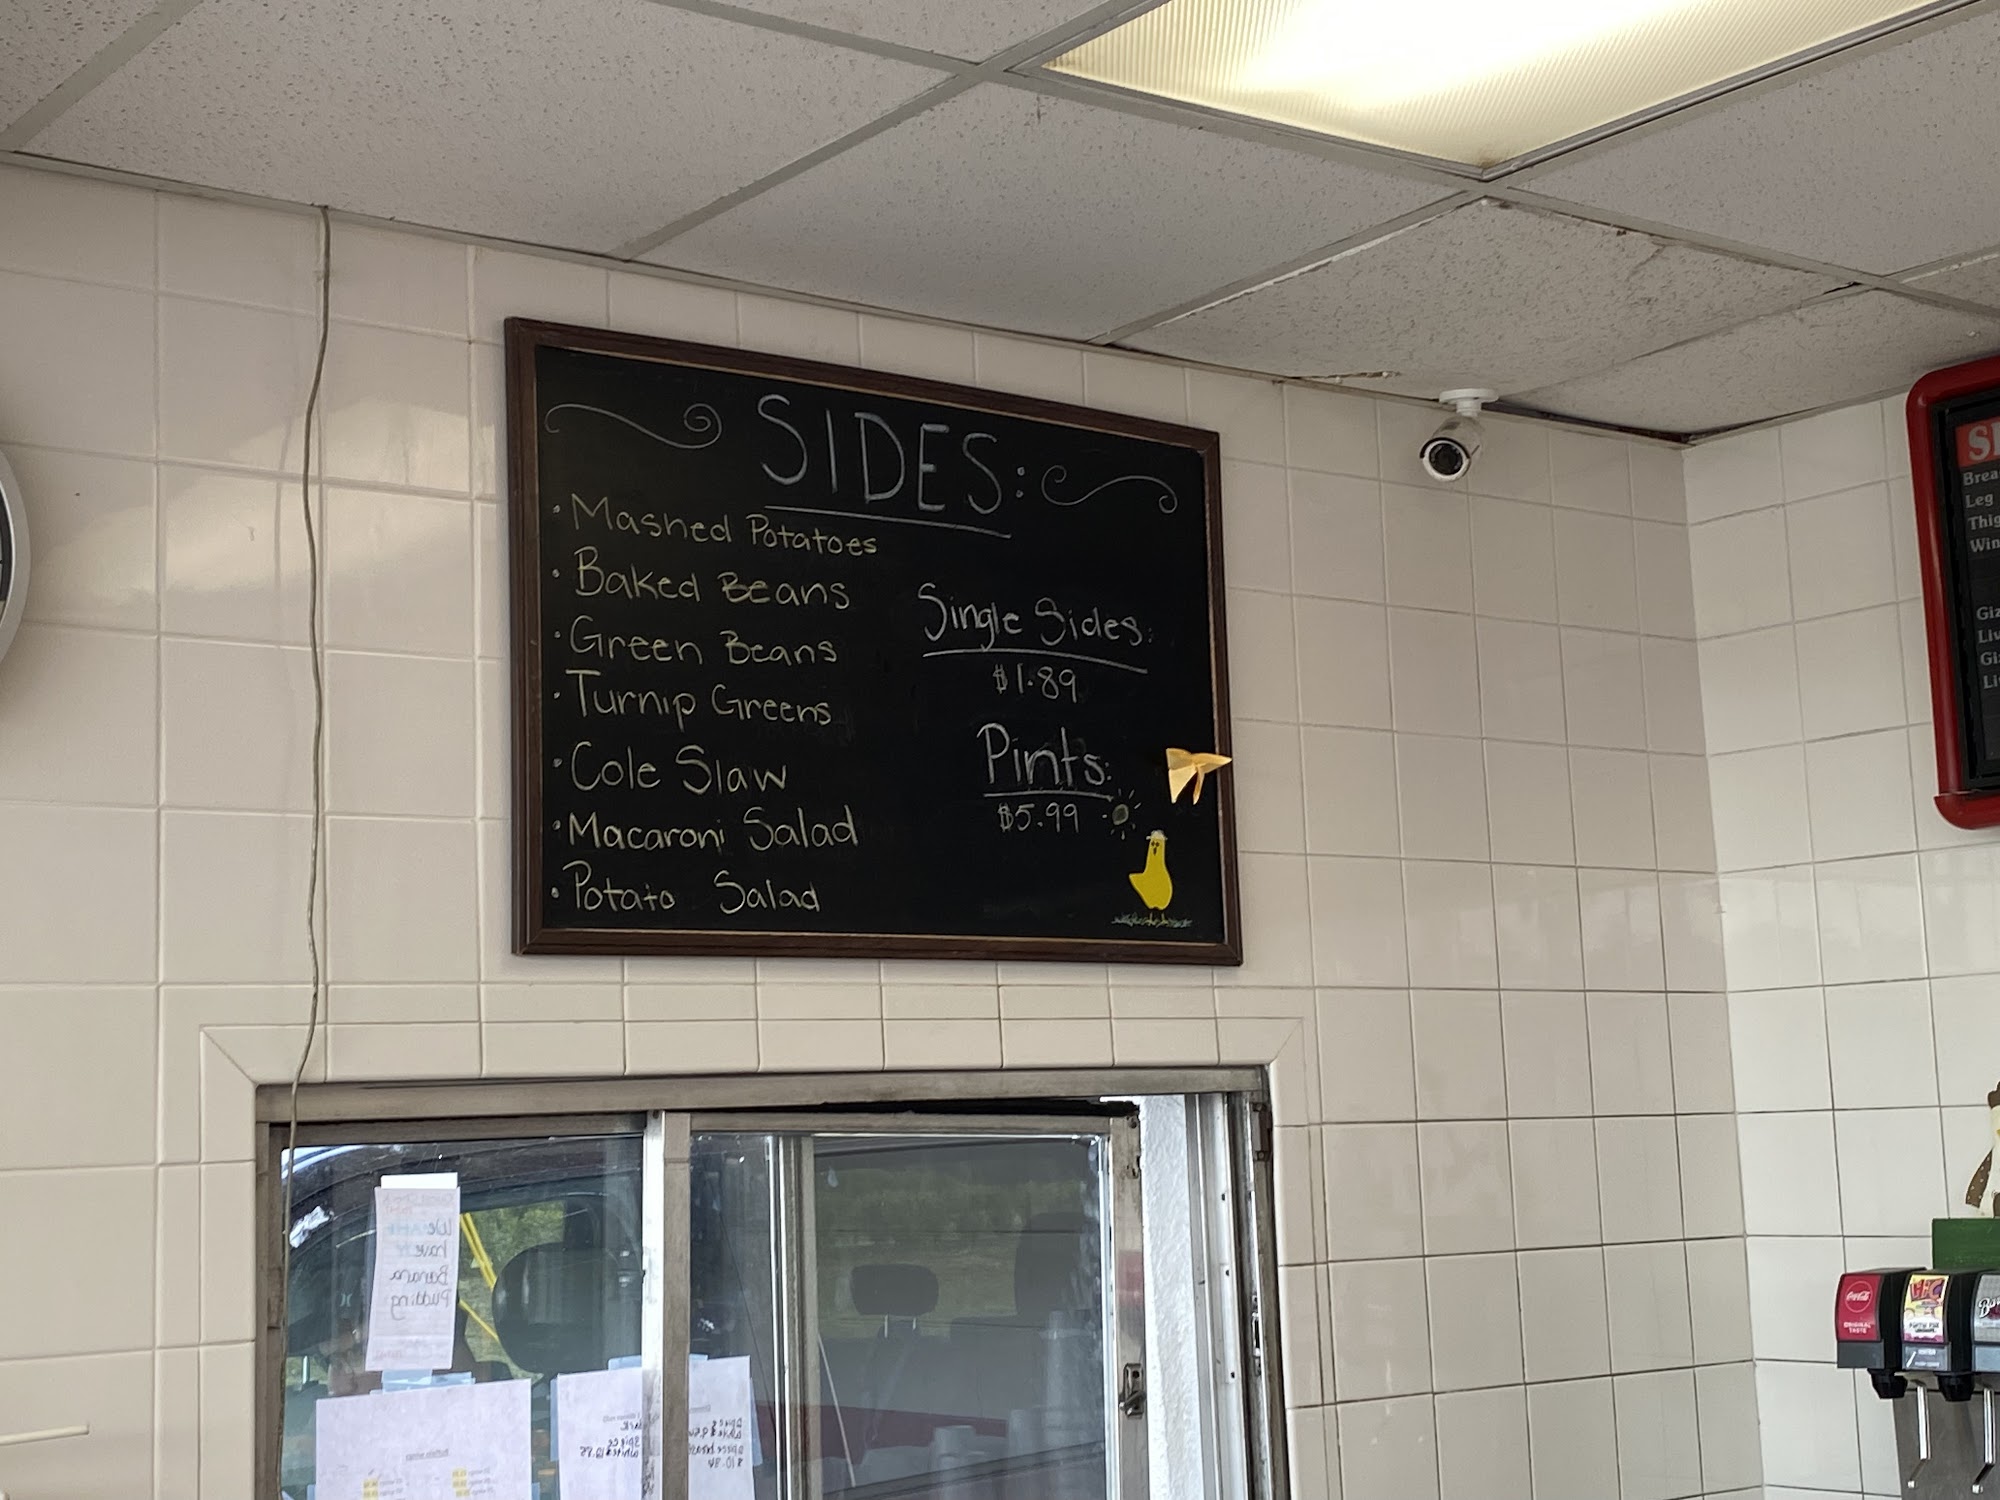 SIDES:
• Mashed Potatoes
• Baked Beans
• Green Beans
• Turnip Greens
• Cole Slaw
• Macaroni Salad
• Potato Salad
Single Sides:
$1.89
Pints:
$5.99
Brea
Leg
Thig
Win
Giz
Liv
Giz
Liv
We
have
Banana
Pudding
Coca-Cola
ORIGINAL
TASTE